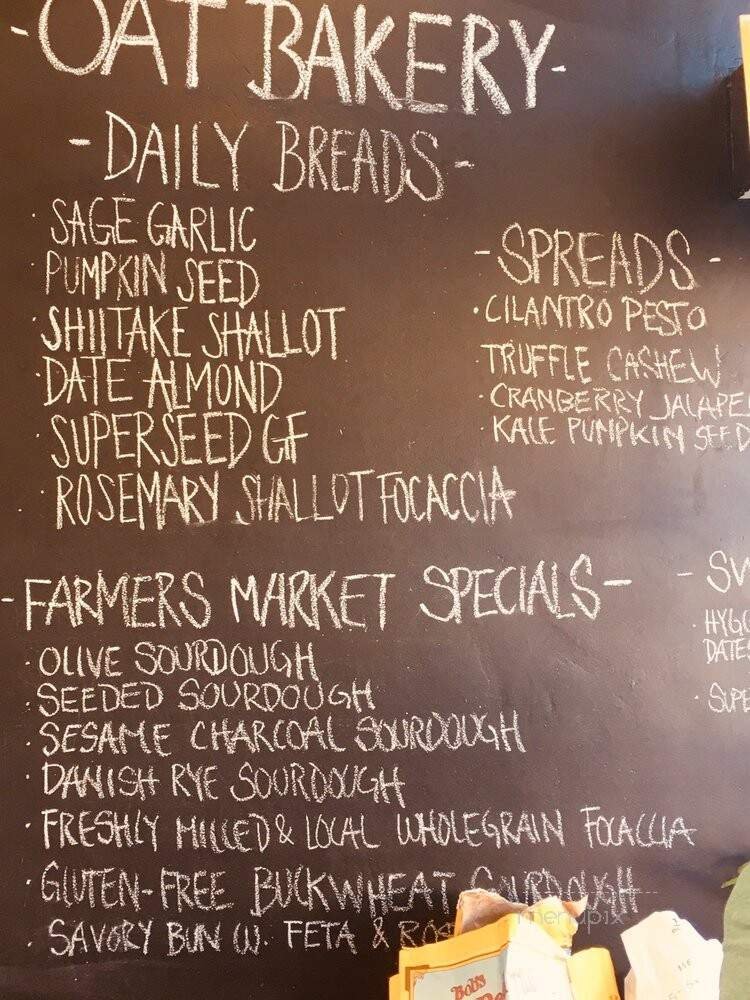 -OAT BAKERY-
-DAILY BREADS-
· SAGE GARLIC
· PUMPKIN SEED
· SHIITAKE SHALLOT
· DATE ALMOND
· SUPERSEED GF
· ROSEMARY SHALLOT FOCACCIA
-SPREADS-
· CILANTRO PESTO
· TRUFFLE CASHEW
· CRANBERRY JALAPE
· KALE PUMPKIN SEED
-FARMERS MARKET SPECIALS-
· OLIVE SOURDOUGH
· SEEDED SOURDOUGH
· SESAME CHARCOAL SOURDOUGH
· DANISH RYE SOURDOUGH
· FRESHLY MILLED & LOCAL WHOLEGRAIN FOCACCIA
· GLUTEN-FREE BUCKWHEAT SOURDOUGH
· SAVORY BUN W. FETA & ROS
- SW
· HYGG
DATES
· SUPE
menupix
Bob's